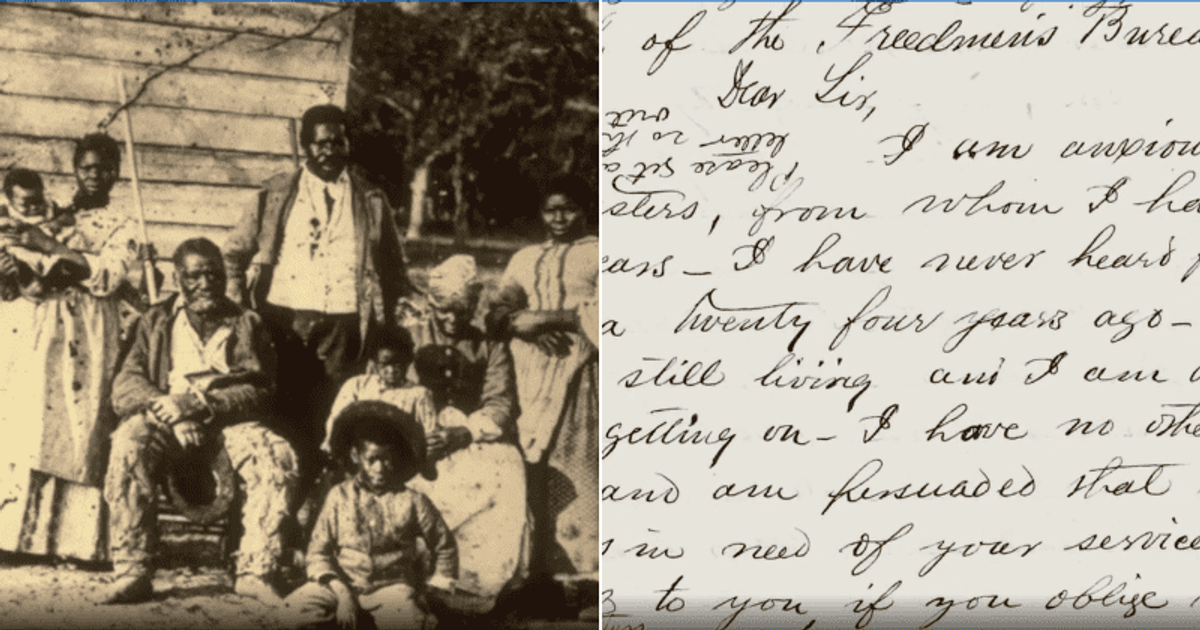 of the Freedmen's Burea
Dear Sir,
Please
letter
I am anxiou
sters, from whom I ha
ears — I have never heard f
a twenty four years ago —
still living and I am
getting on — I have no othe
and am persuaded that
in need of your service
to you, if you oblige